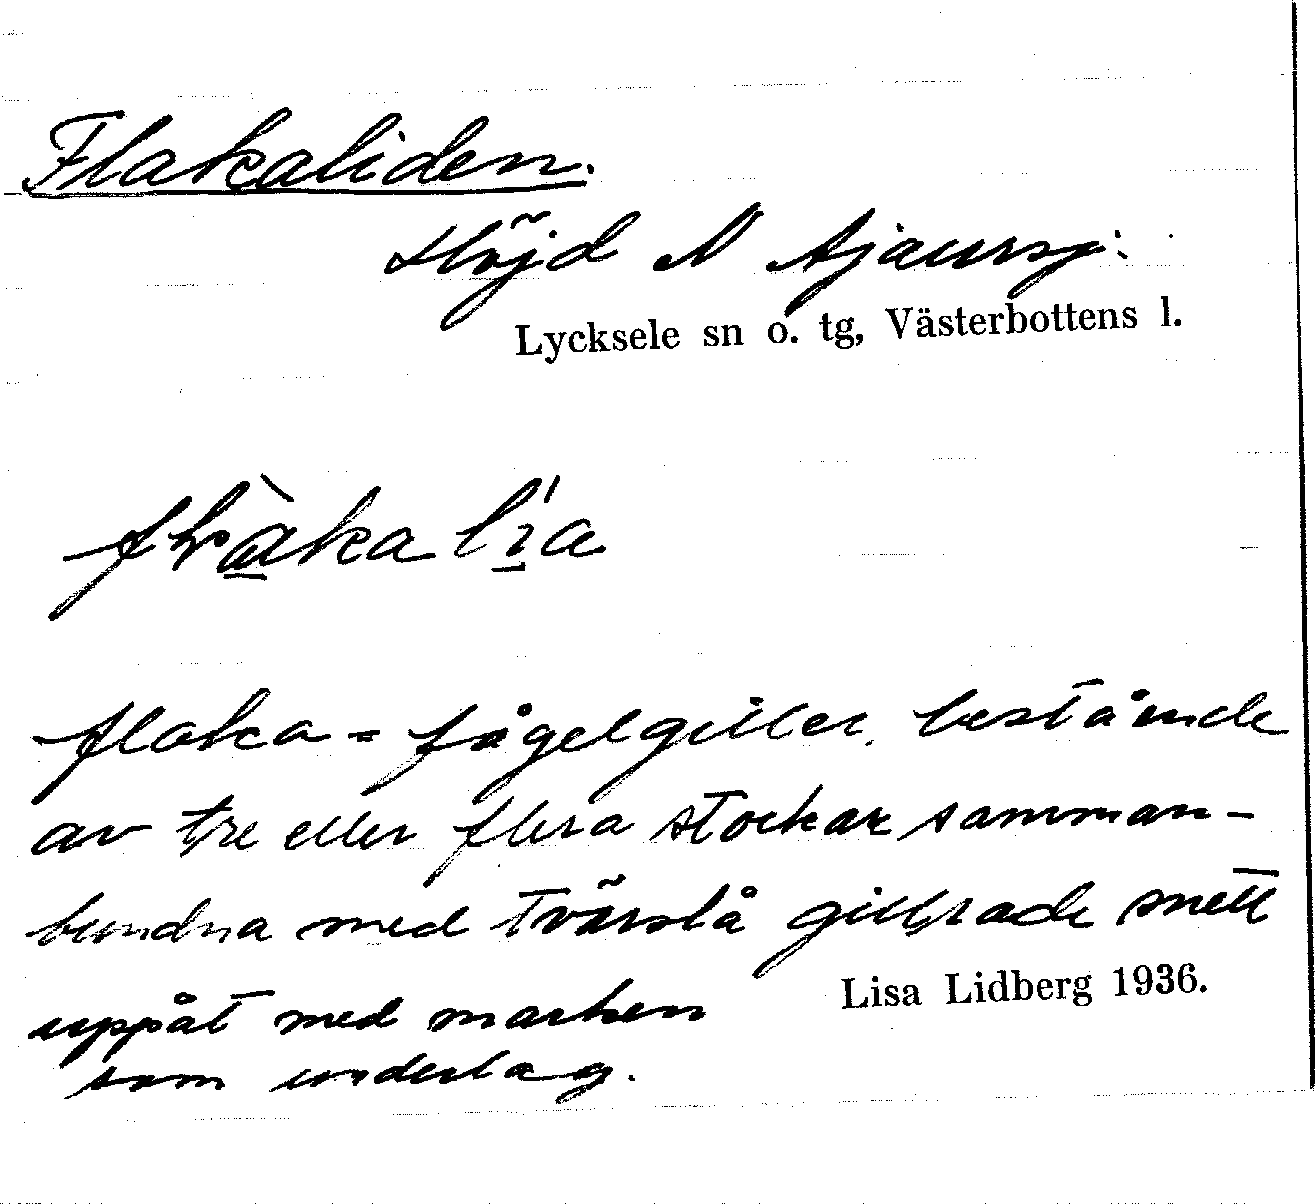 Flakaliden.
Höjd N Ajaursj:
Lycksele sn o. tg, Västerbottens l.
flàka lía
flaka = fågelgiller, bestående
av tre eller flera stockar samman-
bundna med tvärslå gillrade snett
uppåt med marken
Lisa Lidberg 1936.
som underlag.